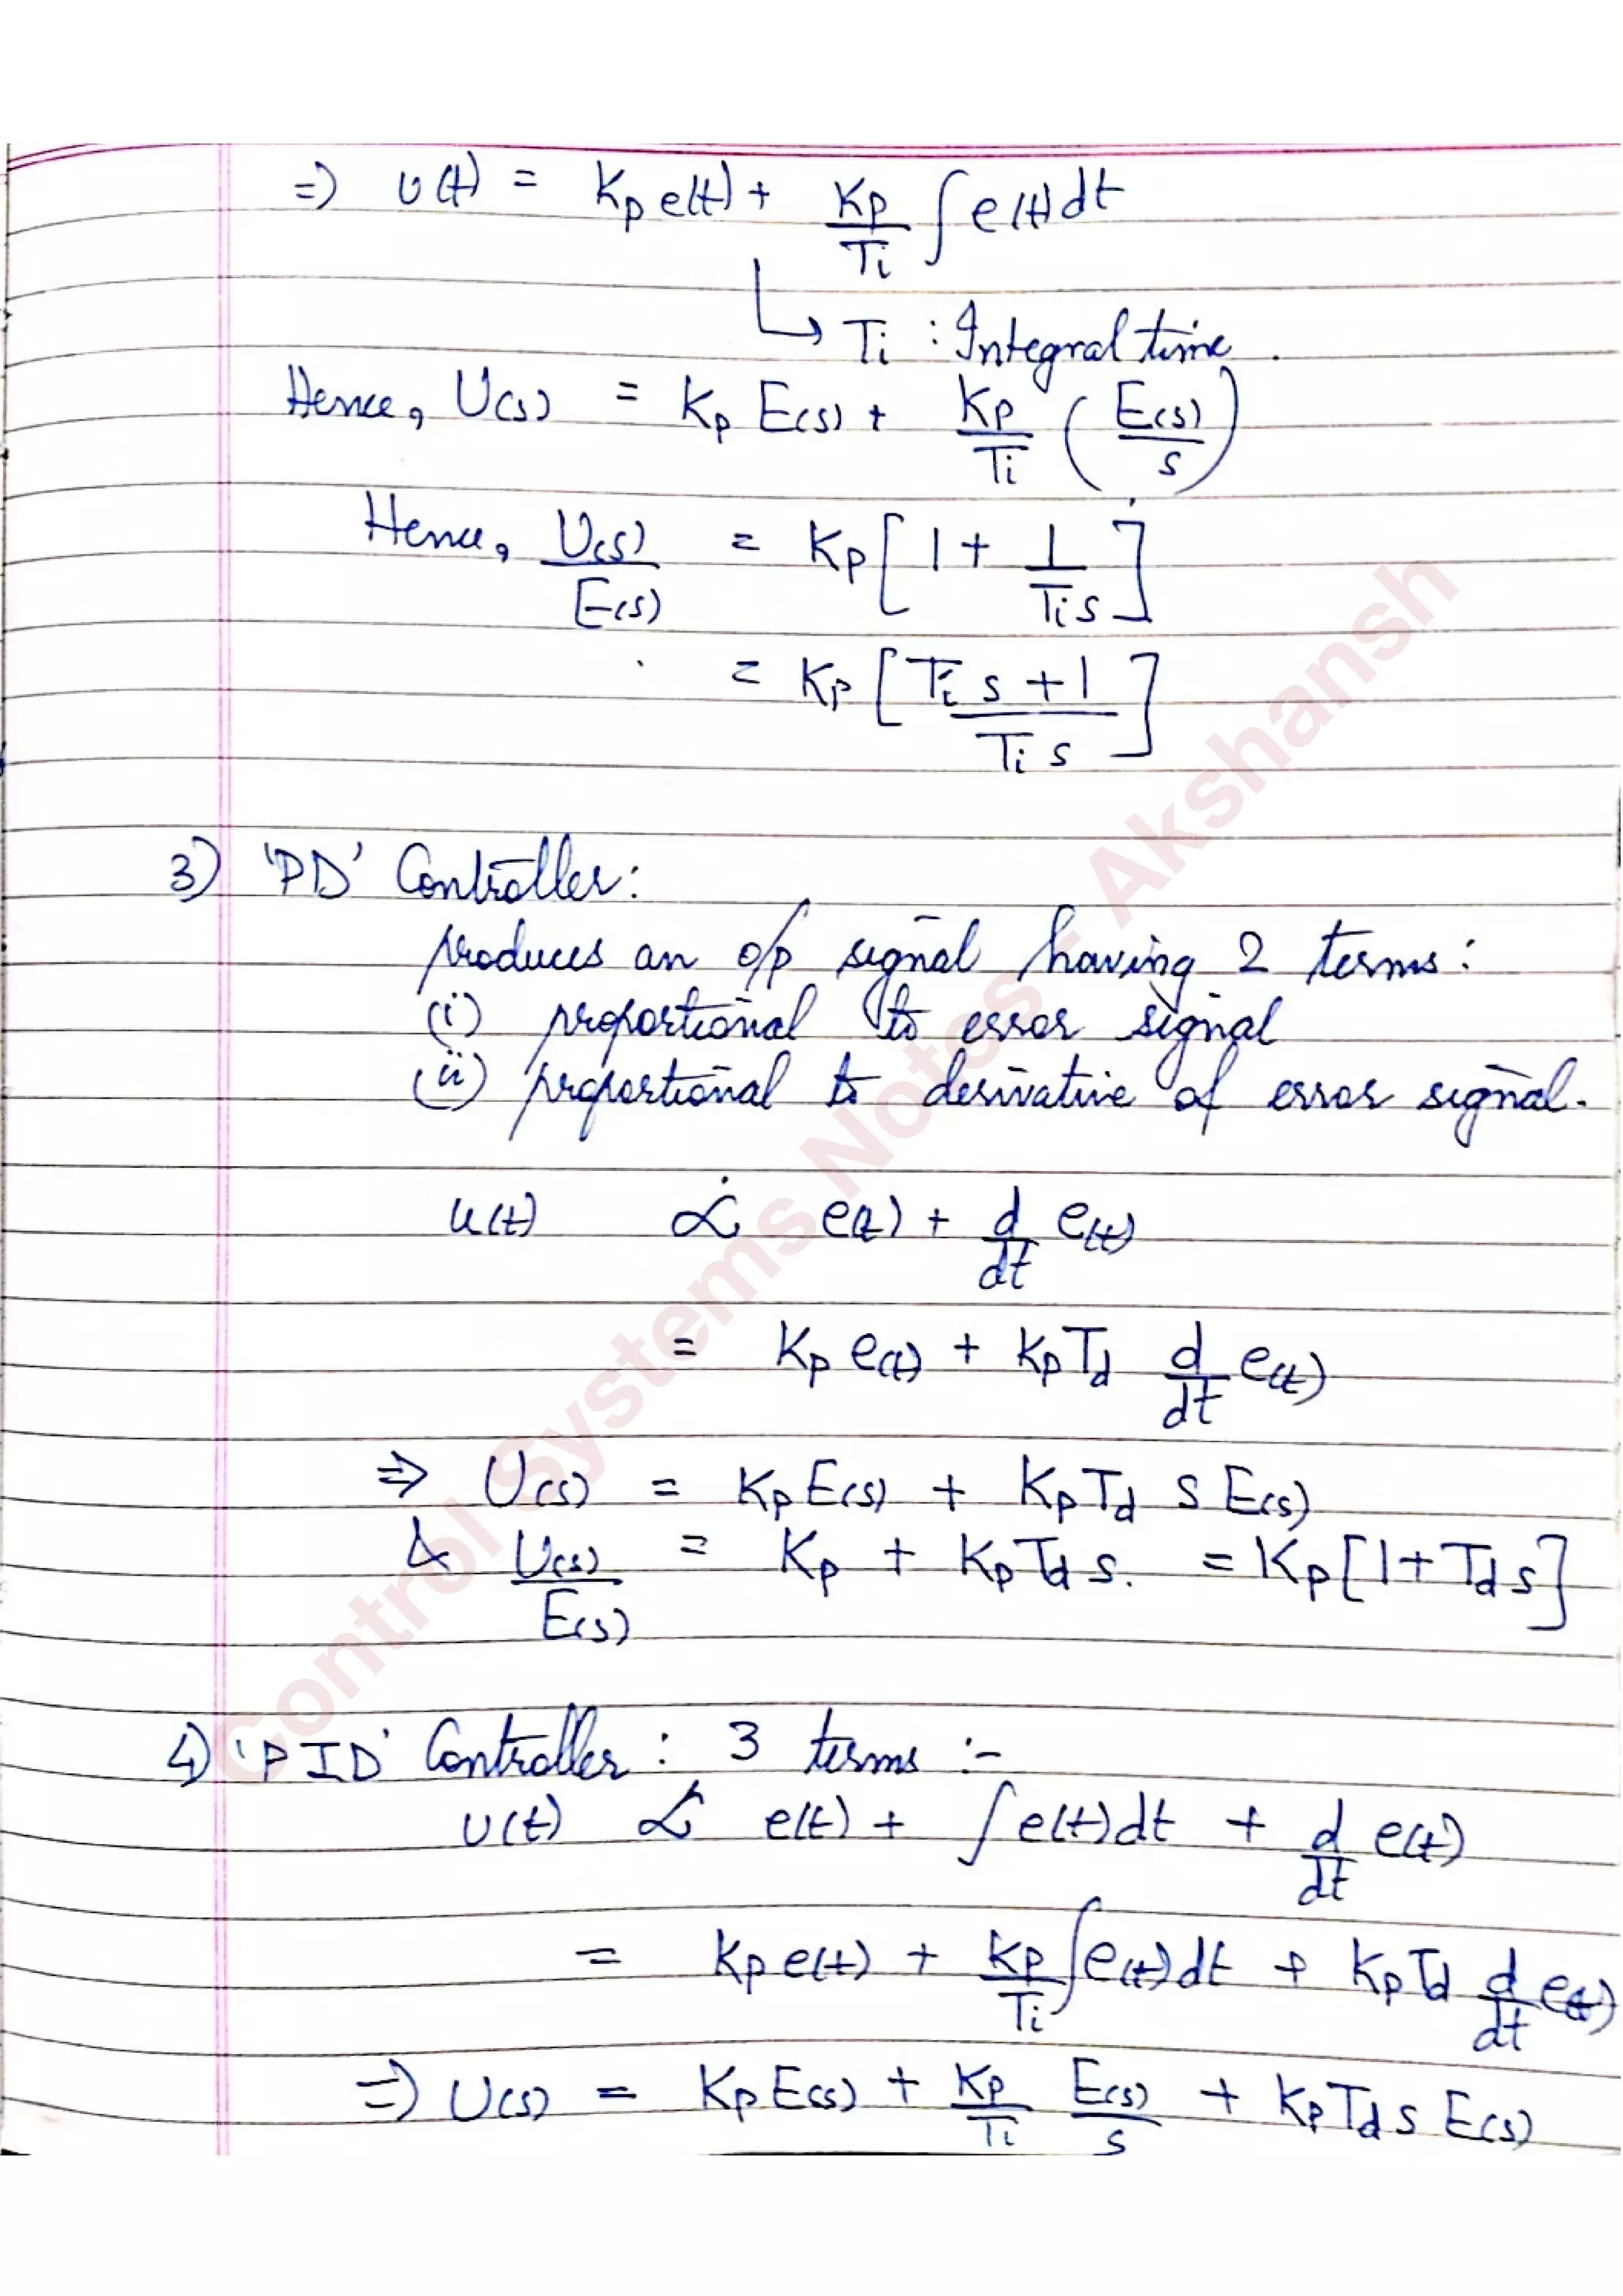 =) u(t) = Kp e(t) + Kp/Ti ∫ e(t) dt
↳ Ti : Integral time.
Hence, U(s) = Kp E(s) + Kp/Ti (E(s)/s)
Hence, U(s)/E(s) = Kp [1 + 1/Ti s]
= Kp [Ti s + 1 / Ti s]
3) 'PD' Controller:
produces an o/p signal having 2 terms:
(i) proportional to error signal
(ii) proportional to derivative of error signal.
u(t) ∝ e(t) + d/dt e(t)
= Kp e(t) + Kp Td d/dt e(t)
⇒ U(s) = Kp E(s) + Kp Td s E(s)
& U(s)/E(s) = Kp + Kp Td s. = Kp [1 + Td s]
4) 'PID' Controller : 3 terms :-
u(t) ∝ e(t) + ∫ e(t) dt + d/dt e(t)
= Kp e(t) + Kp/Ti ∫ e(t) dt + Kp Td d/dt e(t)
=) U(s) = Kp E(s) + Kp/Ti E(s)/s + Kp Td s E(s)
Control Systems Notes - Akshansh